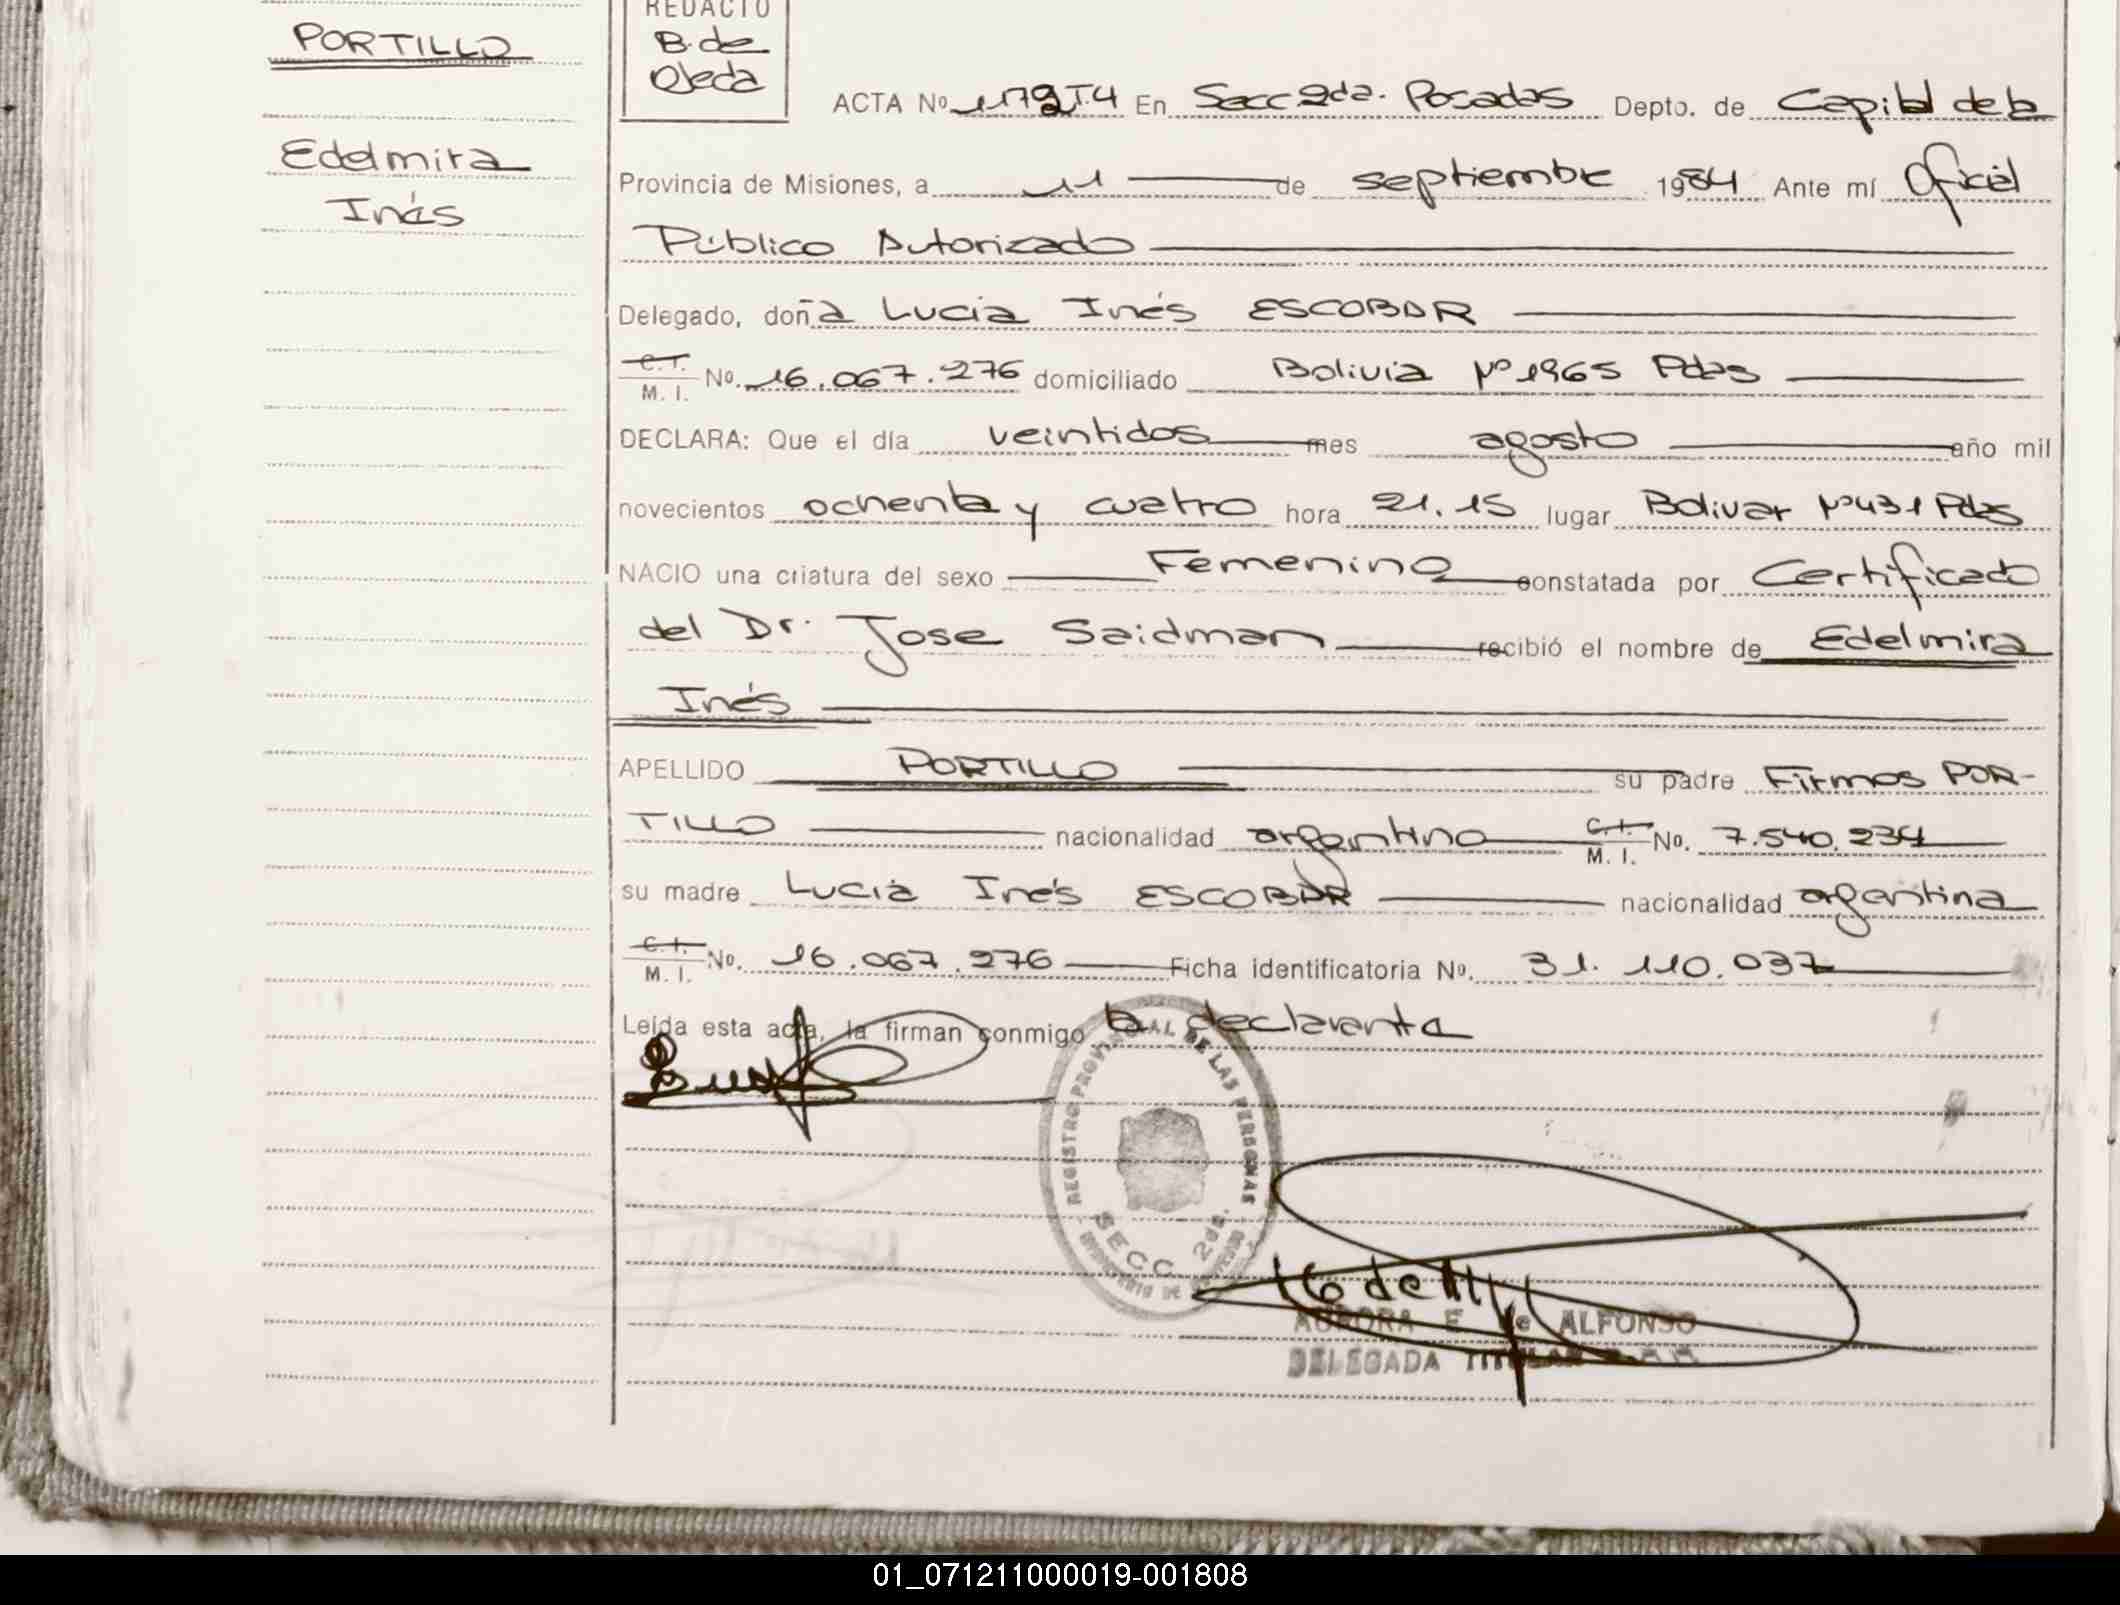 PORTILLO
Edelmira
Inés
REDACTO
B. de
Ojeda
ACTA No 1179 T.4 En Secc 2da. Posadas Depto. de Capital de la
Provincia de Misiones, a 11 de septiembre 1984 Ante mí Oficial
Público Autorizado
Delegado, doña Lucia Inés ESCOBAR
C.I. M. I. No. 16.067.276 domiciliado Bolivia Nº 1965 Pdas
DECLARA: Que el día veintidos mes agosto año mil
novecientos ochenta y cuatro hora 21.15 lugar Bolivar Nº 431 Pdas
NACIO una criatura del sexo Femenino constatada por Certificado
del Dr. Jose Saidman recibió el nombre de Edelmira
Inés
APELLIDO PORTILLO su padre Firmos POR-
TILLO nacionalidad argentino C.I. M. I. No. 7.540.234
su madre Lucia Inés ESCOBAR nacionalidad argentina
C.I. M. I. No. 16.067.276 Ficha identificatoria No. 31.110.037
Leída esta acta, la firman conmigo la declaranta
REGISTRO PROVINCIAL DE LAS PERSONAS
SECC 2da.
AURORA F. de ALFONSO
DELEGADA TITULAR
01_071211000019-001808